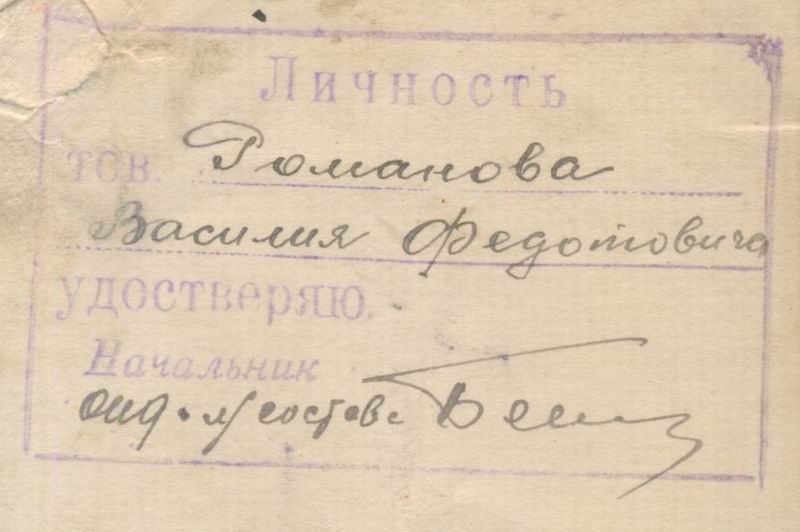 Личность
тов. Романова
Василия Федотовича
удостверяю.
Начальник